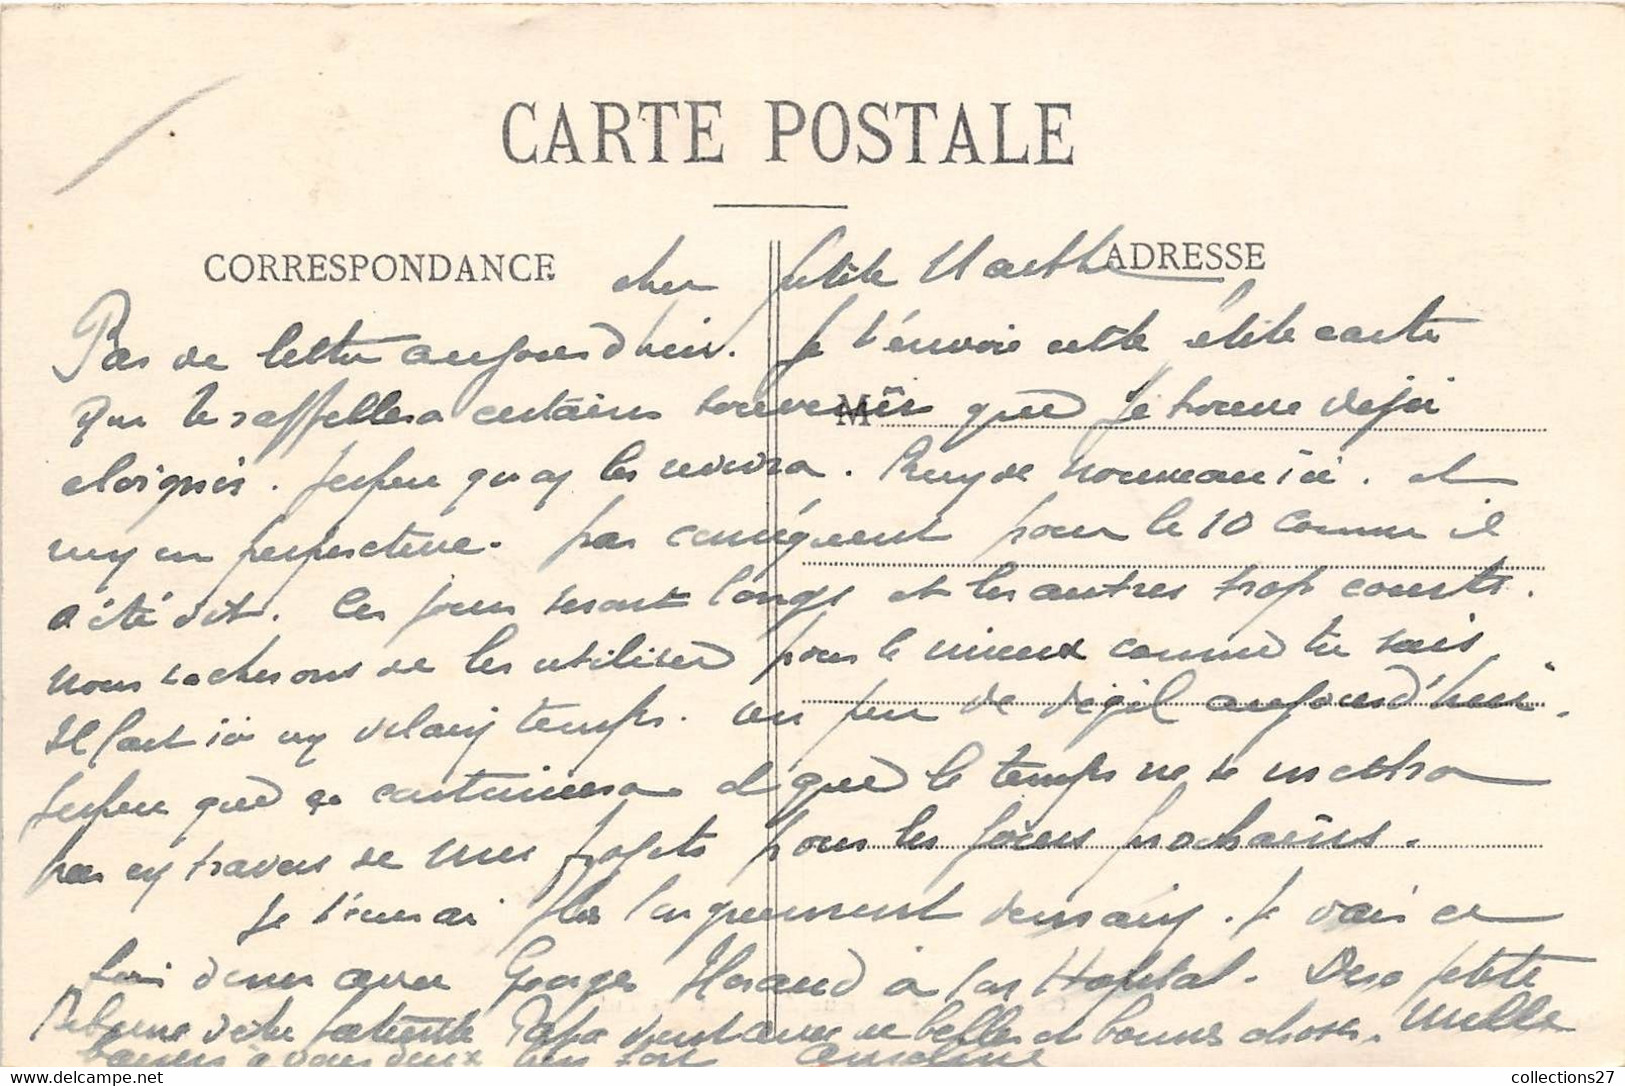 CARTE POSTALE
CORRESPONDANCE
ADRESSE
cher petite Marthe
Pas de lettre aujourd'hui. Je t'envoie cette ptite carte
qui te rappellera certains souvenirs que je trouve déjà
éloignés. J'espère qu'on les revivra. nouveau ici. et
en perspective. par conséquent pour le 10 comme il
a été dit. les jours seront longs et les autres trop courts.
nous tacherons de les utiliser pour le mieux comme tu sais
Il fait ici un vilain temps. un peu de dégel aujourd'hui.
J'espère que ça continuera et que le temps ne se mettra
pas en travers de mes projets pour les jours prochains.
Je t'écrirai plus longuement demain. Je vais ce
soir diner avec Georges à son Hopital. Dis a petite
M
votre Papa vient avec de belles et bonnes choses. Mille
baisers à vous deux
collections27